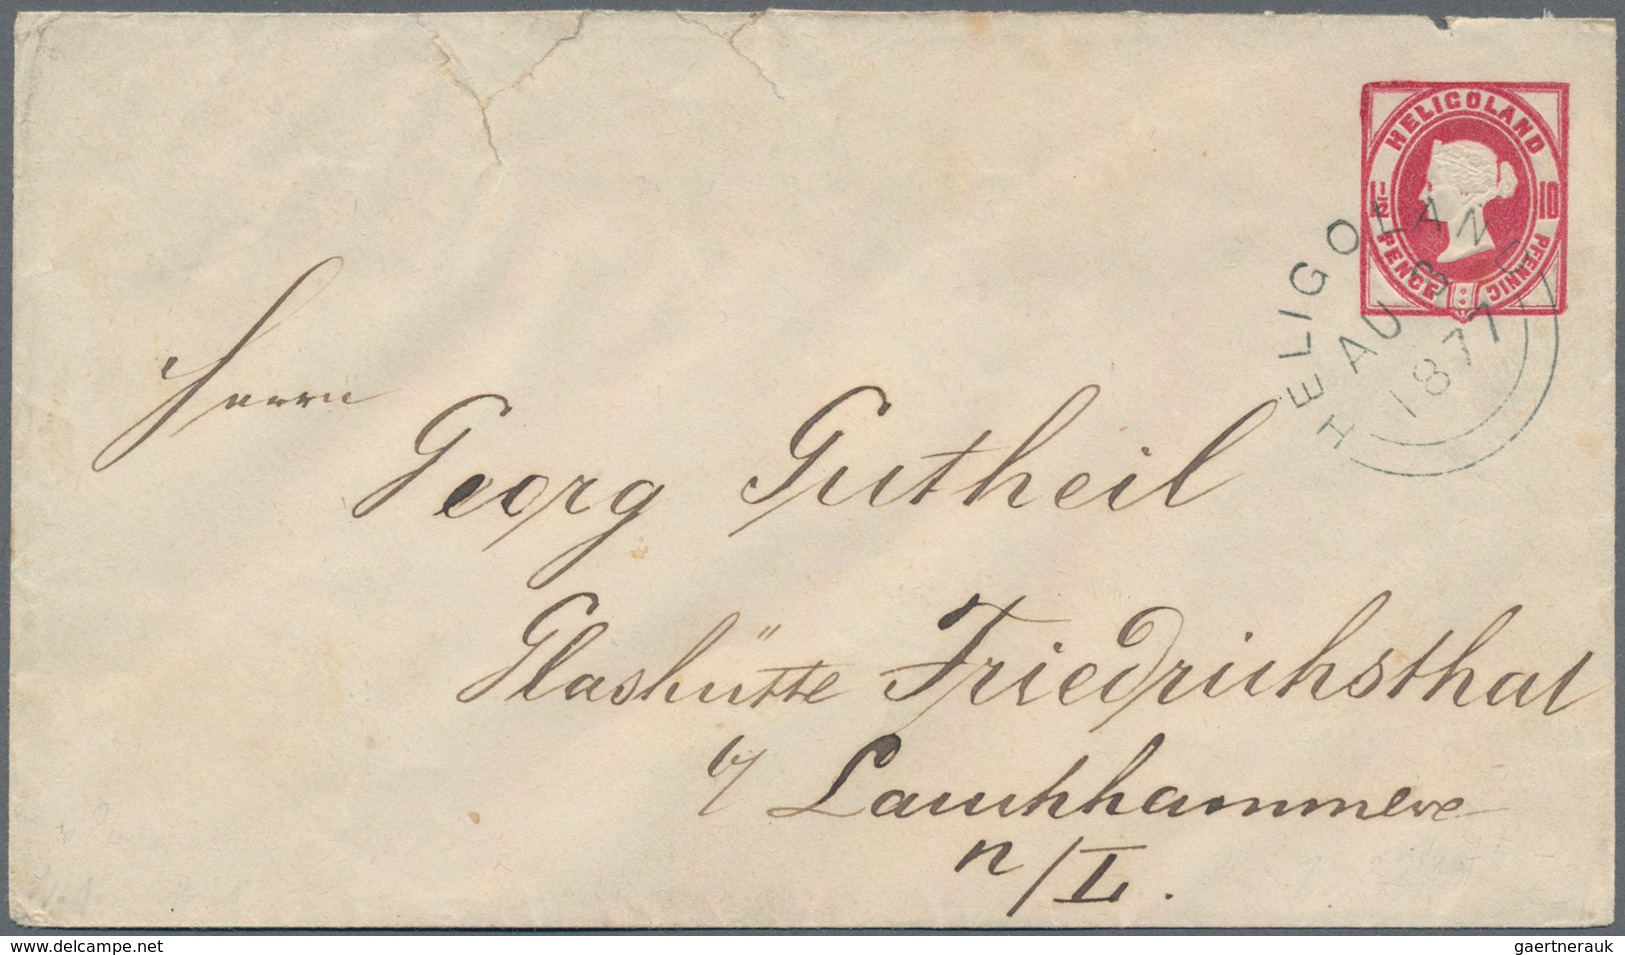 HELIGOLAND
½ PENCE 10 PFENNIG
HELIGOLAND
AU 3
1877
Herrn
Georg Gutheil
Glashütte Friedrichsthal
b/ Lauchhammer
n/L.
delcampe.net
gaertnerauk